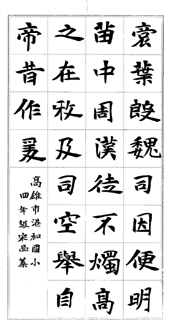 葉魏司因便明
苗中周漢徒不燭高
之在及司空舉自
帝昔作爰
高雄市港和國小
四年級